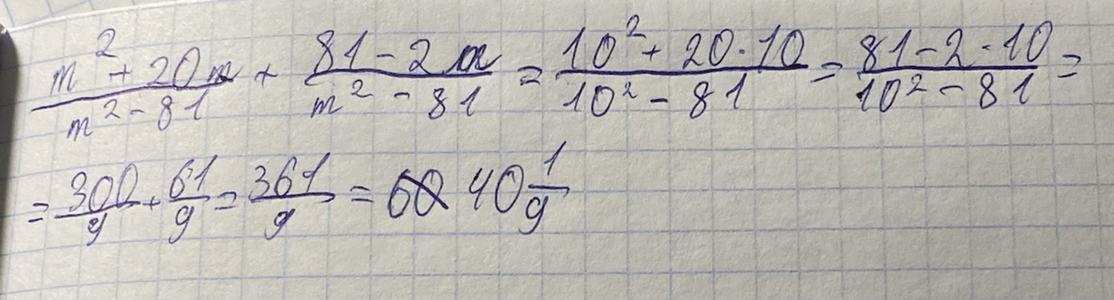 \frac{m^2 + 20m}{m^2 - 81} + \frac{81 - 2m}{m^2 - 81} = \frac{10^2 + 20 \cdot 10}{10^2 - 81} = \frac{81 - 2 \cdot 10}{10^2 - 81} =
= \frac{300}{9} + \frac{61}{9} = \frac{361}{9} = 40\frac{1}{9}